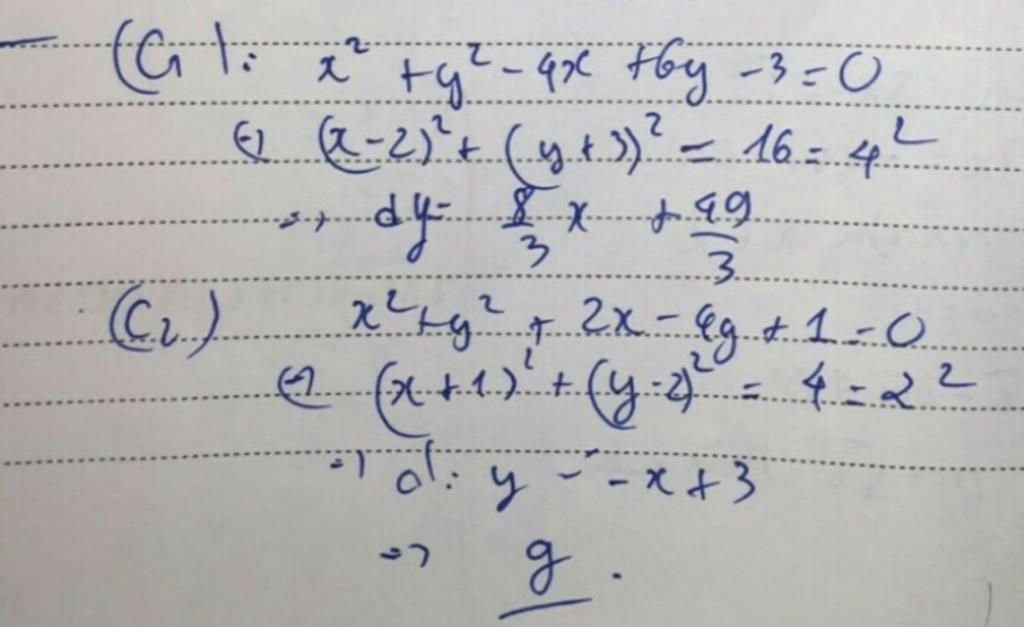 (C1): x² + y² - 4x + 6y - 3 = 0
⇔ (x-2)² + (y+3)² = 16 = 4²
=> dy = 8/3 x + 49/3
(C2) x² + y² + 2x - 4y + 1 = 0
⇔ (x+1)² + (y-2)² = 4 = 2²
=> d: y = -x + 3
=> g.